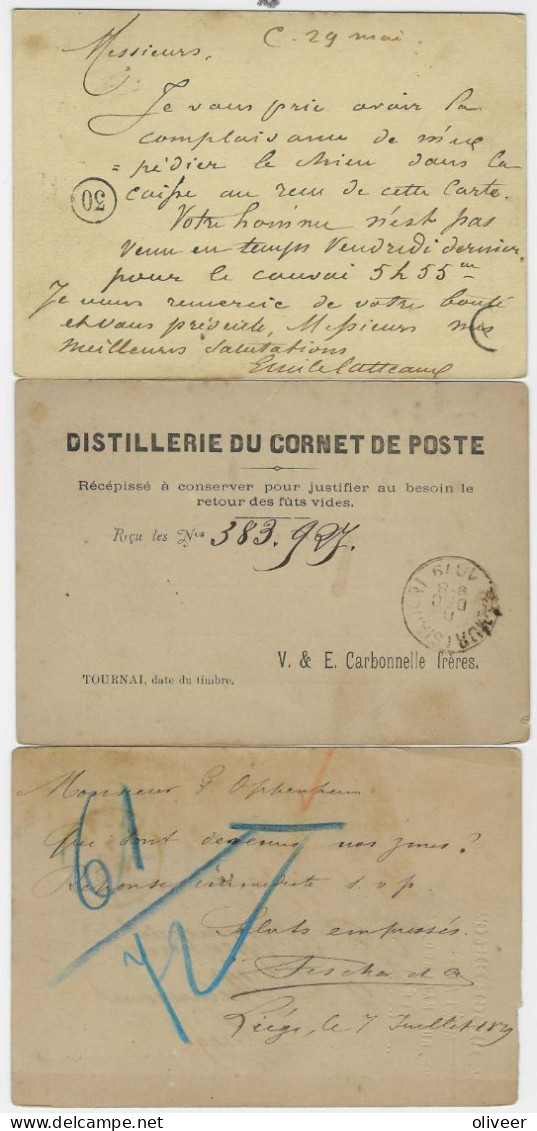 C. 29 mai
Messieurs,
Je vous prie avoir la
complaisance de m'ex
= pédier le chien dans la
caisse au reçu de cette Carte.
Votre homme n'est pas
venu en temps Vendredi dernier
pour le convoi 5 h 55 m
Je vous remercie de votre bonté
et vous présente, Messieurs mes
meilleures salutations
Emile
30
DISTILLERIE DU CORNET DE POSTE
Récépissé à conserver pour justifier au besoin le
retour des fûts vides.
Reçu les Nos 383. 927.
V. & E. Carbonnelle frères.
TOURNAI, date du timbre.
Monsieur Oppenheim
Que sont devenus nos zincs?
Réponse immédiate s. v. p.
Saluts empressés.
Liège, le 7 Juillet
61
72
oliveer